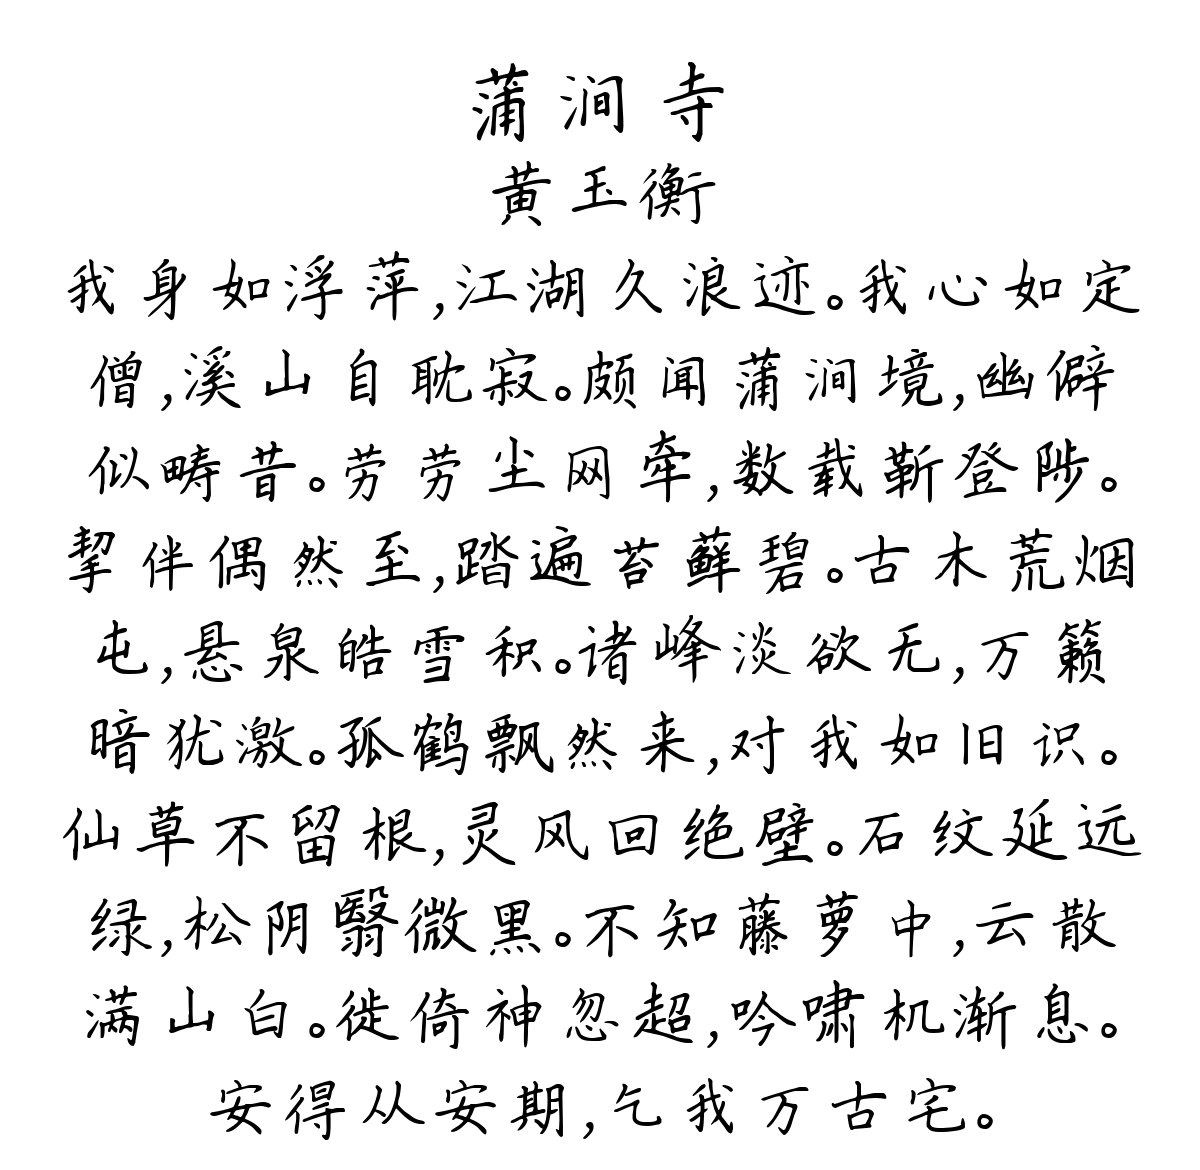 蒲涧寺
黄玉衡
我身如浮萍,江湖久浪迹。我心如定
僧,溪山自耽寂。颇闻蒲涧境,幽僻
似畴昔。劳劳尘网牵,数载靳登陟。
挈伴偶然至,踏遍苔藓碧。古木荒烟
屯,悬泉皓雪积。诸峰淡欲无,万籁
暗犹激。孤鹤飘然来,对我如旧识。
仙草不留根,灵风回绝壁。石纹延远
绿,松阴翳微黑。不知藤萝中,云散
满山白。徙倚神忽超,吟啸机渐息。
安得从安期,乞我万古宅。